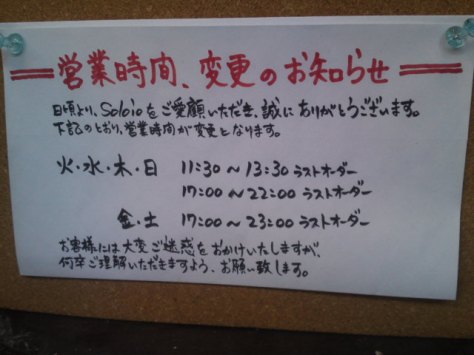 営業時間、変更のお知らせ
日頃より、Soloioをご愛顧いただき、誠にありがとうございます。
下記のとおり、営業時間が変更となります。
火・水・木・日 11:30～13:30 ラストオーダー
17:00～22:00 ラストオーダー
金・土 17:00～23:00 ラストオーダー
お客様には大変ご迷惑をおかけいたしますが、
何卒ご理解いただきますよう、お願い致します。